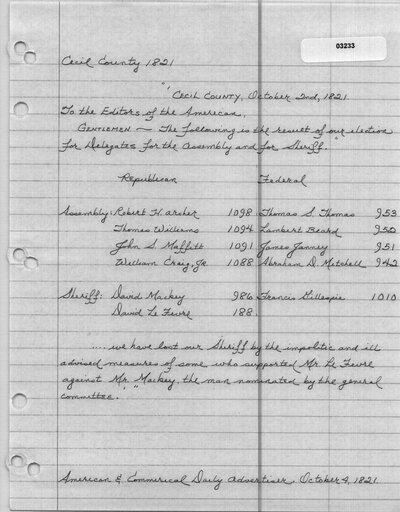 03233
Cecil County 1821
"CECIL COUNTY, October 2nd, 1821.
To the Editors of the American,
GENTLEMEN — The following is the result of our election
for Delegates for the Assembly and for Sheriff."
Republican Federal
Assembly: Robert H. Archer 1098 Thomas S. Thomas 953
Thomas Williams 1094 Lambert Beard 950
John S. Maffitt 1091 James Janney 951
William Craig, Jr. 1088 Abraham D. Mitchell 942
Sheriff: David Mackey 986 Francis Gillespie 1010
David Le Fevre 188.
.... we have lost our Sheriff by the impolitic and ill
advised measures of some who supported Mr. Le Fevre
against Mr. Mackey, the man nominated by the general
committee."
American & Commerical Daily Advertiser, October 4, 1821.